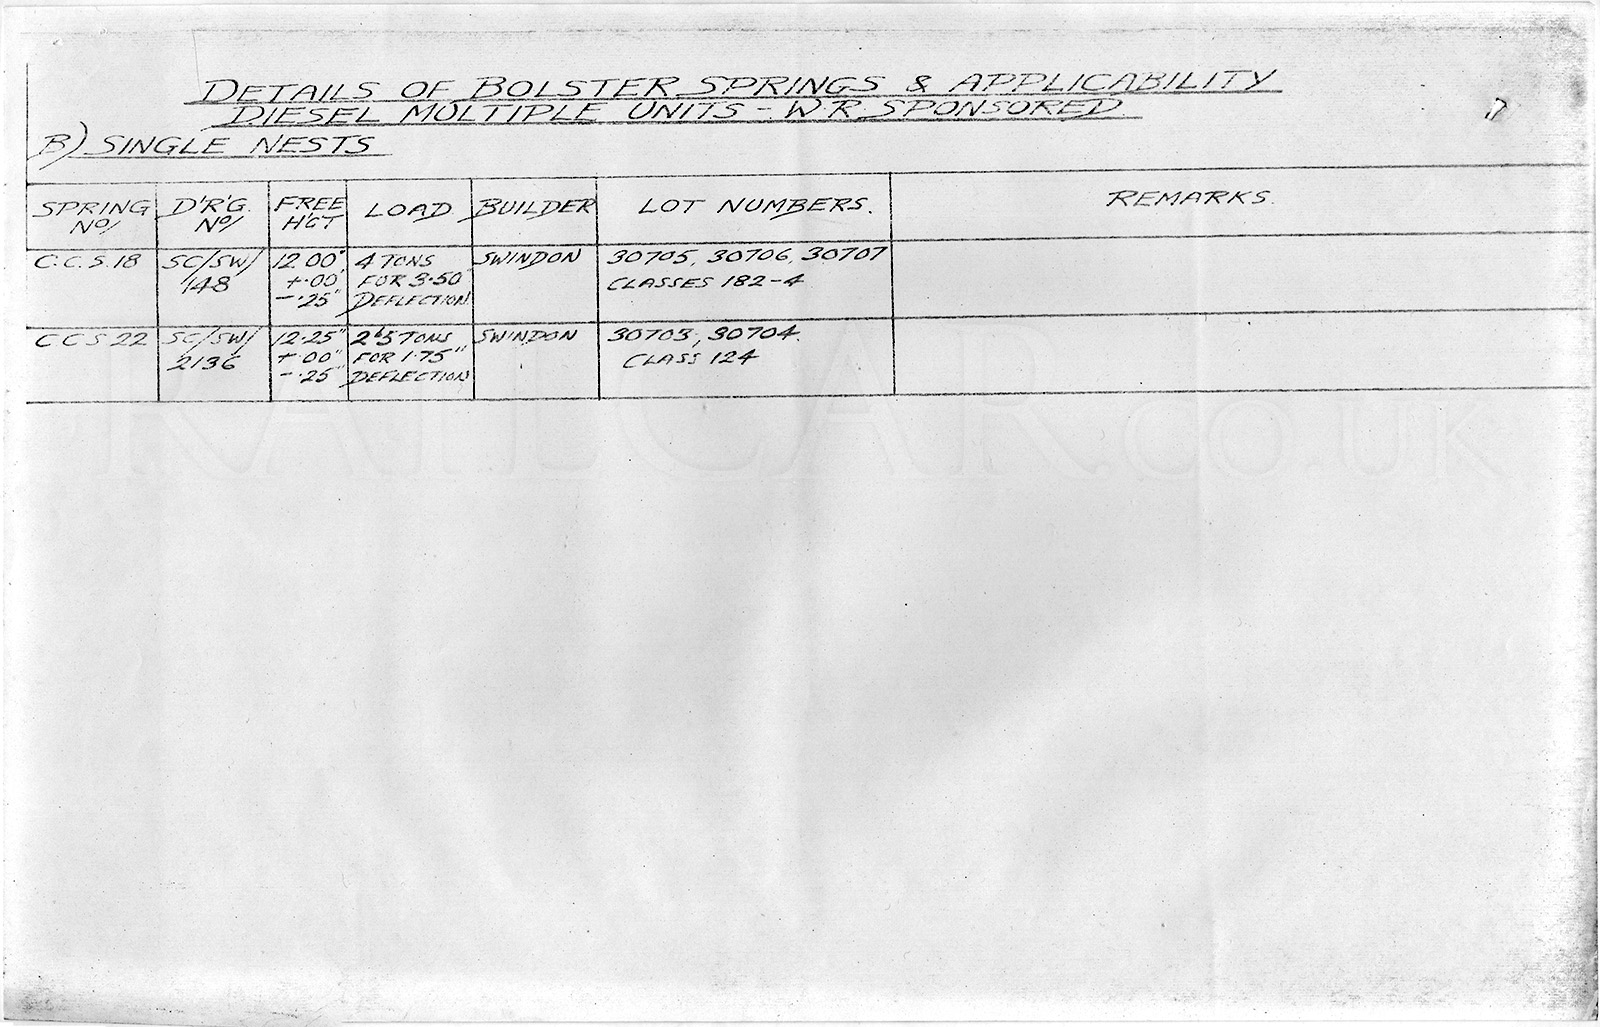 DETAILS OF BOLSTER SPRINGS & APPLICABILITY
DIESEL MULTIPLE UNITS - W.R. SPONSORED.
B) SINGLE NESTS
SPRING NO/ D'R'G. NO/ FREE H'G'T LOAD BUILDER LOT NUMBERS. REMARKS.
C.C.S.18 SC/SW/ 12.00" 4 TONS SWINDON 30705, 30706, 30707
148 +.00" FOR 3.50" CLASSES 182-4
-.25" DEFLECTION.
C C S 22 SC/SW/ 12.25" TONS SWINDON 30703, 30704.
2136 +.00" FOR 1.75" CLASS 124
-.25" DEFLECTION
RAILCAR.CO.UK